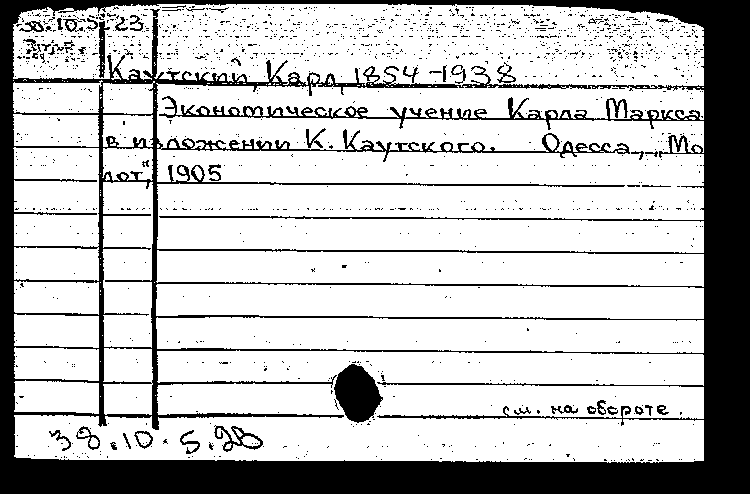 38.10.5.23
Каутский, Карл, 1854-1938
Экономическое учение Карла Маркса
в изложении К. Каутского. Одесса, „Мо
лот", 1905
см. на обороте.
38.10.5.23